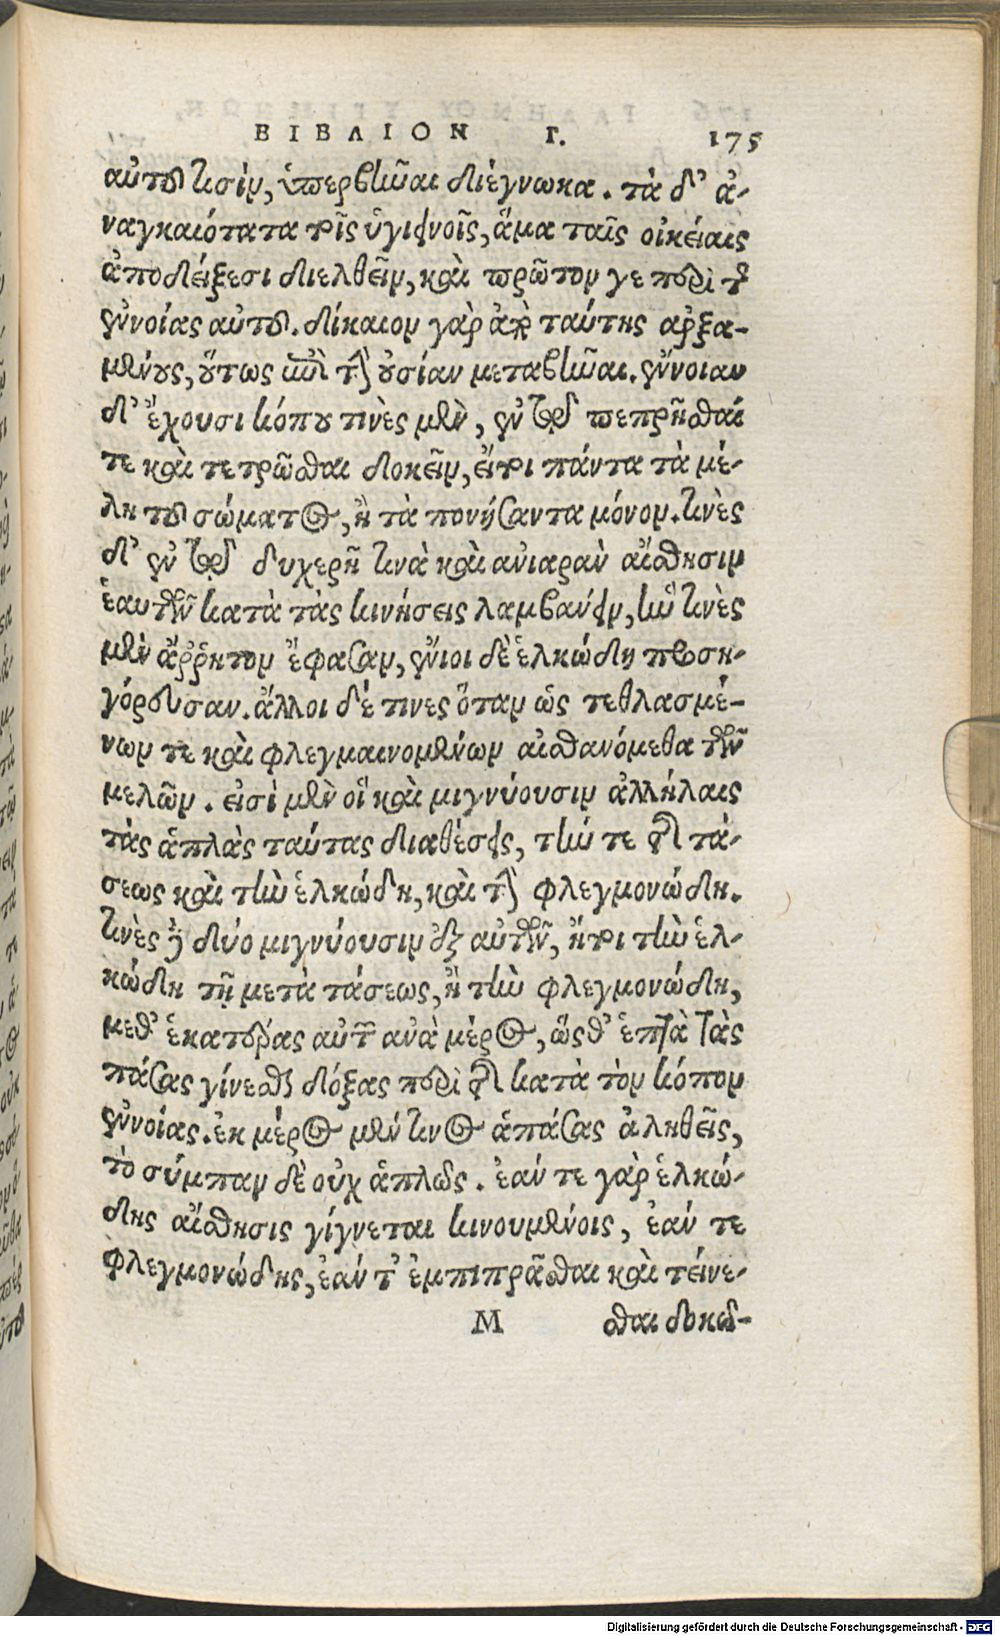 ΒΙΒΛΙΟΝ Γ. 175
αὐτοῦ τισίν, ὑπερβῆναι διέγνωκα. τὰ δ' ἀ-
ναγκαιότατα τοῖς ὑγιεινοῖς, ἅμα ταῖς οἰκείαις
ἀποδείξεσι διελθεῖν, καὶ πρῶτον γε περὶ τῆς
ἐννοίας αὐτοῦ. δίκαιον γὰρ ἀπὸ ταύτης ἀρξα-
μένους, οὕτως ἐπὶ τὴν οὐσίαν μεταβῆναι. ἔννοιαν
δ' ἔχουσι κόπου τινὲς μὲν, ἐν τῷ πεπρῆσθαί
τε καὶ τετρῶσθαι δοκεῖν, εἴτοι πάντα τὰ μέ-
λη τοῦ σώματος, ἢ τὰ πονήσαντα μόνον. τινὲς
δ' ἐν τῷ δυχερῆ τινὰ καὶ ἀνιαρὰν αἴσθησιν
ἑαυτῶν κατὰ τὰς κινήσεις λαμβάνειν, ἣν τινὲς
μὲν ἄῤῥητον ἔφασαν, ἔνιοι δὲ ἑλκώδη προση-
γόρευσαν. ἄλλοι δέ τινες ὅταν ὡς τεθλασμέ-
νων τε καὶ φλεγμαινομένων αἰσθανόμεθα τῶν
μελῶν. εἰσὶ μὲν οἳ καὶ μιγνύουσιν ἀλλήλαις
τὰς ἁπλὰς ταύτας διαθέσεις, τήν τε τῆς τά-
σεως καὶ τὴν ἑλκώδη, καὶ τὴν φλεγμονώδη.
τινὲς δὲ δύο μιγνύουσιν ἐξ αὐτῶν, ἤτοι τὴν ἑλ-
κώδη τῇ μετὰ τάσεως, ἢ τὴν φλεγμονώδη,
μεθ' ἑκατέρας αὐτῶν ἀνὰ μέρος, ὥσθ' ἑπτὰ τὰς
πάσας γίνεσθαι δόξας περὶ τῆς κατὰ τὸν κόπον
ἐννοίας. ἐκ μέρος μέν τινος ἁπάσας ἀληθεῖς,
τὸ σύμπαν δὲ οὐχ ἁπλῶς. ἐάν τε γὰρ ἑλκώ-
δης αἴσθησις γίγνεται κινουμένοις, ἐάν τε
φλεγμονώδης, ἐάν τ' ἐμπιπρᾶσθαι καὶ τείνε-
M σθαι δοκῶ-
Digitalisierung gefördert durch die Deutsche Forschungsgemeinschaft - DFG